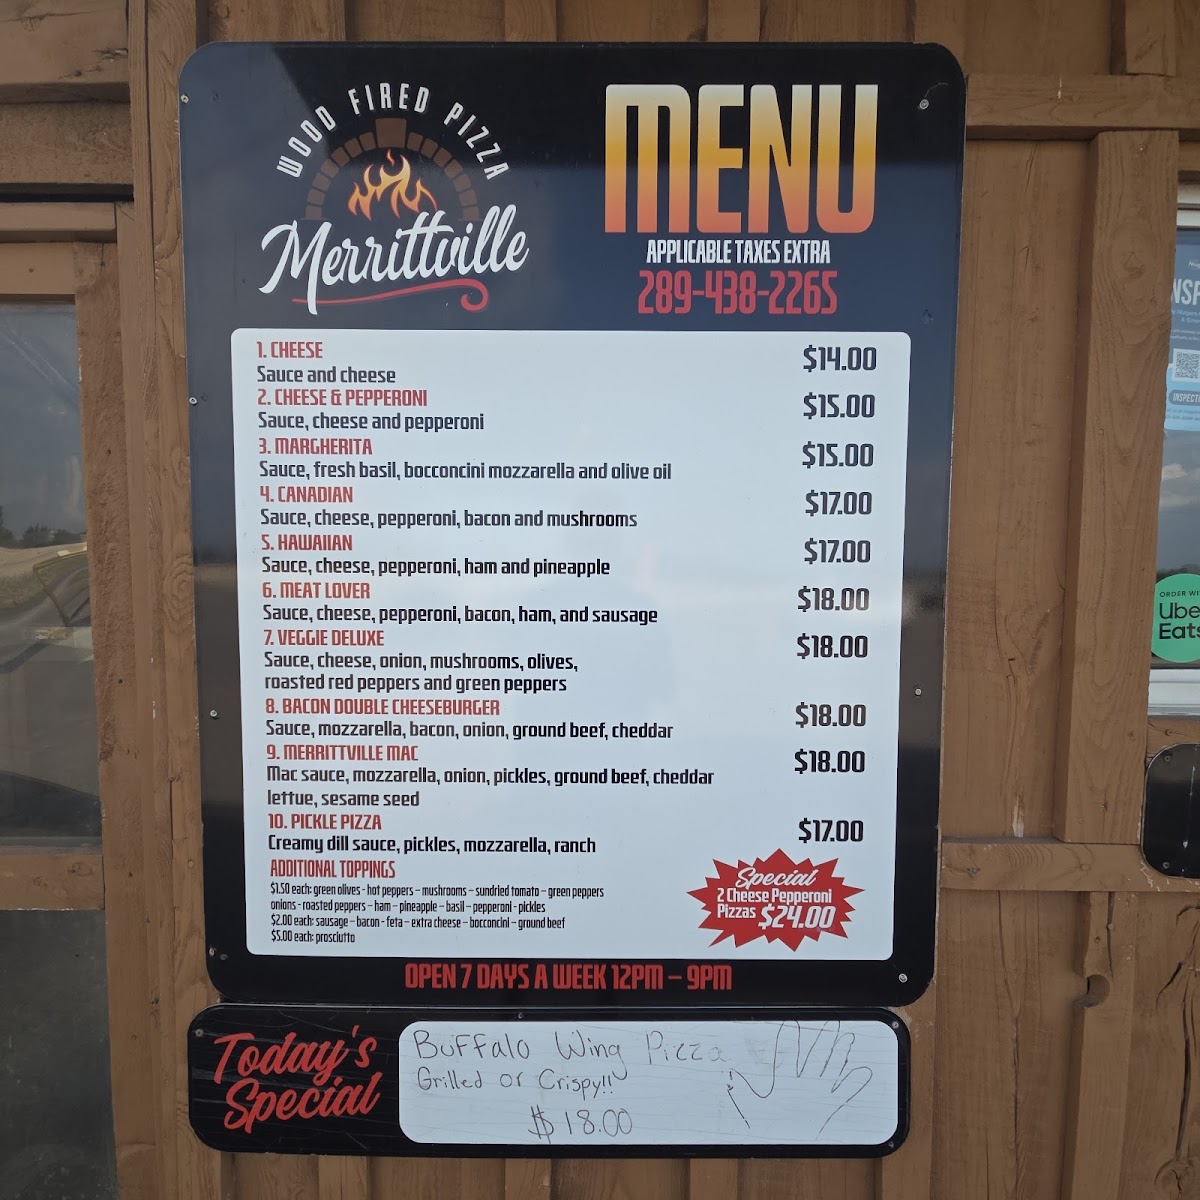 WOOD FIRED PIZZA
Merrittville
MENU
APPLICABLE TAXES EXTRA
289-438-2265
1. CHEESE $14.00
Sauce and cheese
2. CHEESE & PEPPERONI $15.00
Sauce, cheese and pepperoni
3. MARGHERITA $15.00
Sauce, fresh basil, bocconcini mozzarella and olive oil
4. CANADIAN $17.00
Sauce, cheese, pepperoni, bacon and mushrooms
5. HAWAIIAN $17.00
Sauce, cheese, pepperoni, ham and pineapple
6. MEAT LOVER $18.00
Sauce, cheese, pepperoni, bacon, ham, and sausage
7. VEGGIE DELUXE $18.00
Sauce, cheese, onion, mushrooms, olives,
roasted red peppers and green peppers
8. BACON DOUBLE CHEESEBURGER $18.00
Sauce, mozzarella, bacon, onion, ground beef, cheddar
9. MERRITTVILLE MAC $18.00
Mac sauce, mozzarella, onion, pickles, ground beef, cheddar
lettue, sesame seed
10. PICKLE PIZZA $17.00
Creamy dill sauce, pickles, mozzarella, ranch
ADDITIONAL TOPPINGS
$1.50 each: green olives - hot peppers – mushrooms – sundried tomato – green peppers
onions - roasted peppers – ham – pineapple – basil – pepperoni - pickles
$2.00 each: sausage – bacon - feta – extra cheese – bocconcini – ground beef
$5.00 each: prosciutto
Special
2 Cheese Pepperoni
Pizzas $24.00
OPEN 7 DAYS A WEEK 12PM – 9PM
Today's
Special
Buffalo Wing Pizza
Grilled or Crispy!!
$18.00
ORDER WI
Ube
Eats